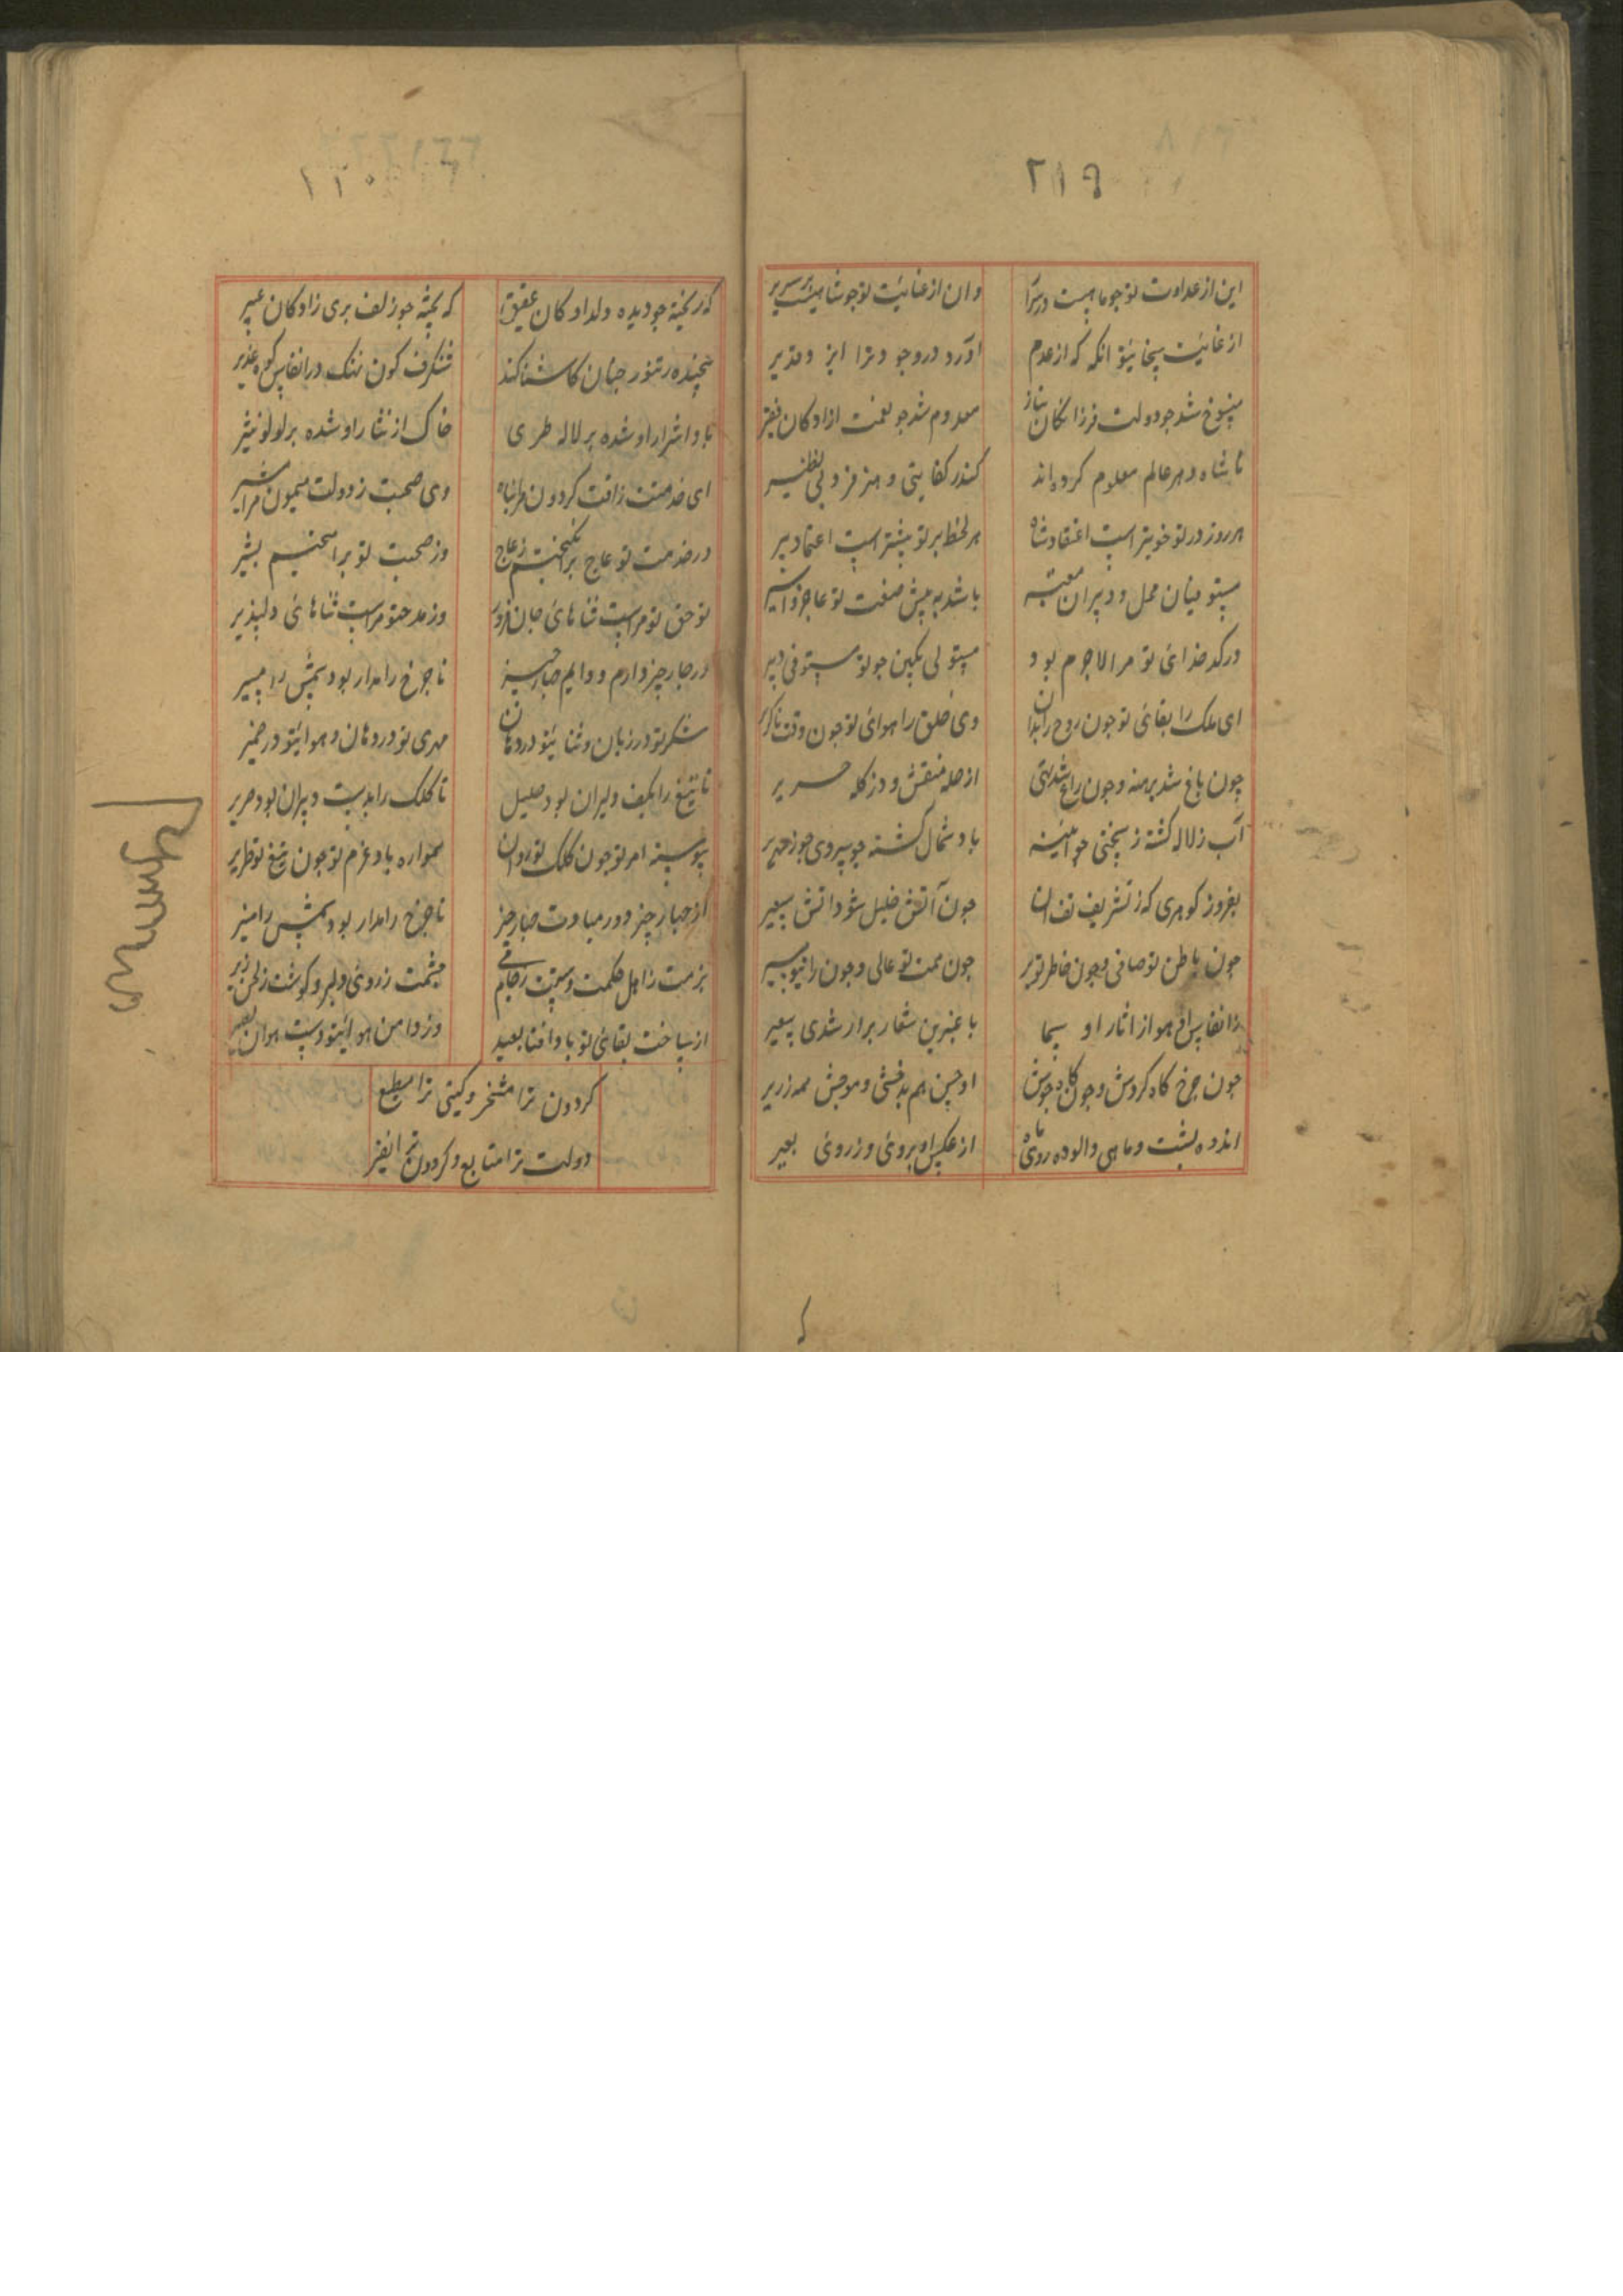 ۲۱۹
این از عداوت تو جو ماهیست در سراب
وان از عنایت تو جو شاهیست بر سریر
از غایت سخائیتو انکه که از عدم
اورد در وجود ترا ایزد قدیر
منسوخ شد جو دولت فرزانگان نیاز
معدوم شد جو نعمت ازادکان فقیر
تا شاه در هر عالم معلوم کرده اند
کندر کفایتی و هنر فرد و بی نظیر
هر روز در تو خوبتر است اعتقاد شاه
هر لحظه بر تو بیشتر است اعتماد میر
میان محل و دبیران
باشد به پیش صنعت تو عاجز و اسیر
در کدخدائی تو مرا لاجرم بود
مستولی نکین جو تو مستوفی دبیر
ای ملک را بقائی تو جون روح را بدن
وی خلق را هوائی تو جون وقت ناکزیر
چون باغ شد برهنه و جون راغ شد تهی
از حله منقش و در کله حریر
آب زلاله کشته ز یخ جو آئینه
باد شمال کشته جو سردی جو زمهریر
بفروز کوهری که ز تشریف تف ان
جون آتش خلیل شود اتش سعیر
جون باطن تو صافی و جون خاطر تو پر
جون همت تو عالی و جون رائیتو
ز انفاس او هوا از اثار او سما
با عنبرین شعار برار شدی سعیر
جون جرخ کاه کردش و جون کاه جوشش
او جسن هم بدخشی و موجش همه زریر
اندوه بشت و ماهی والوده روی ماه
از عکس او بروئی و ز روئی بعیر
۱۲۰
که ریخته جو دیده دلدادکان عقیق
که بیخته جو زلف بری زادکان عبیر
تنور جنان کاشنا کند
شنکرف کون نهنک در انفاس کوه
باد از شرار او شده بر لاله طری
خاک از نثار او شده بر لولو نثیر
ای خدمتت ز افت کردون مرا پناه
وی صحبت ز دولت میمون مرا مشیر
در خدمت تو عاج برانکیختم ز عاج
وز صحبت تو بر امیختیم بشیر
تو حق تو مراست ثنا هائی جان فروز
وز مدحتو مراست ثنا هائی دلپذیر
در جار چیز دارم و دایم جهار جیز
تا جرخ را مدار بود شمس را مسیر
شکر تو در زبان و ثنائیتو در دهان
مهری تو در دهان و هوائیتو در ضمیر
تا تیغ را بکف دلیران بود صلیل
تا کلک را بدست دبیران بود صریر
پیوسته امر تو جون کلک تو روان
همواره باد عزم تو جون تیغ تو طریر
از جهار چیز دور مبادت جهار چیز
تا جرخ را مدار بود شمس را منیر
بزمت ز اهل حکمت و دستت ز جام می
چشمت ز روئی دلبر و کوشت ز لحن زیر
از ساخت بقائی تو باد افتا بعید
وز دامن هوائیتو دست هوان
کردون ترا مسخر و کیتی ترا مطیع
دولت ترا متابع و کردون ترا نفیر